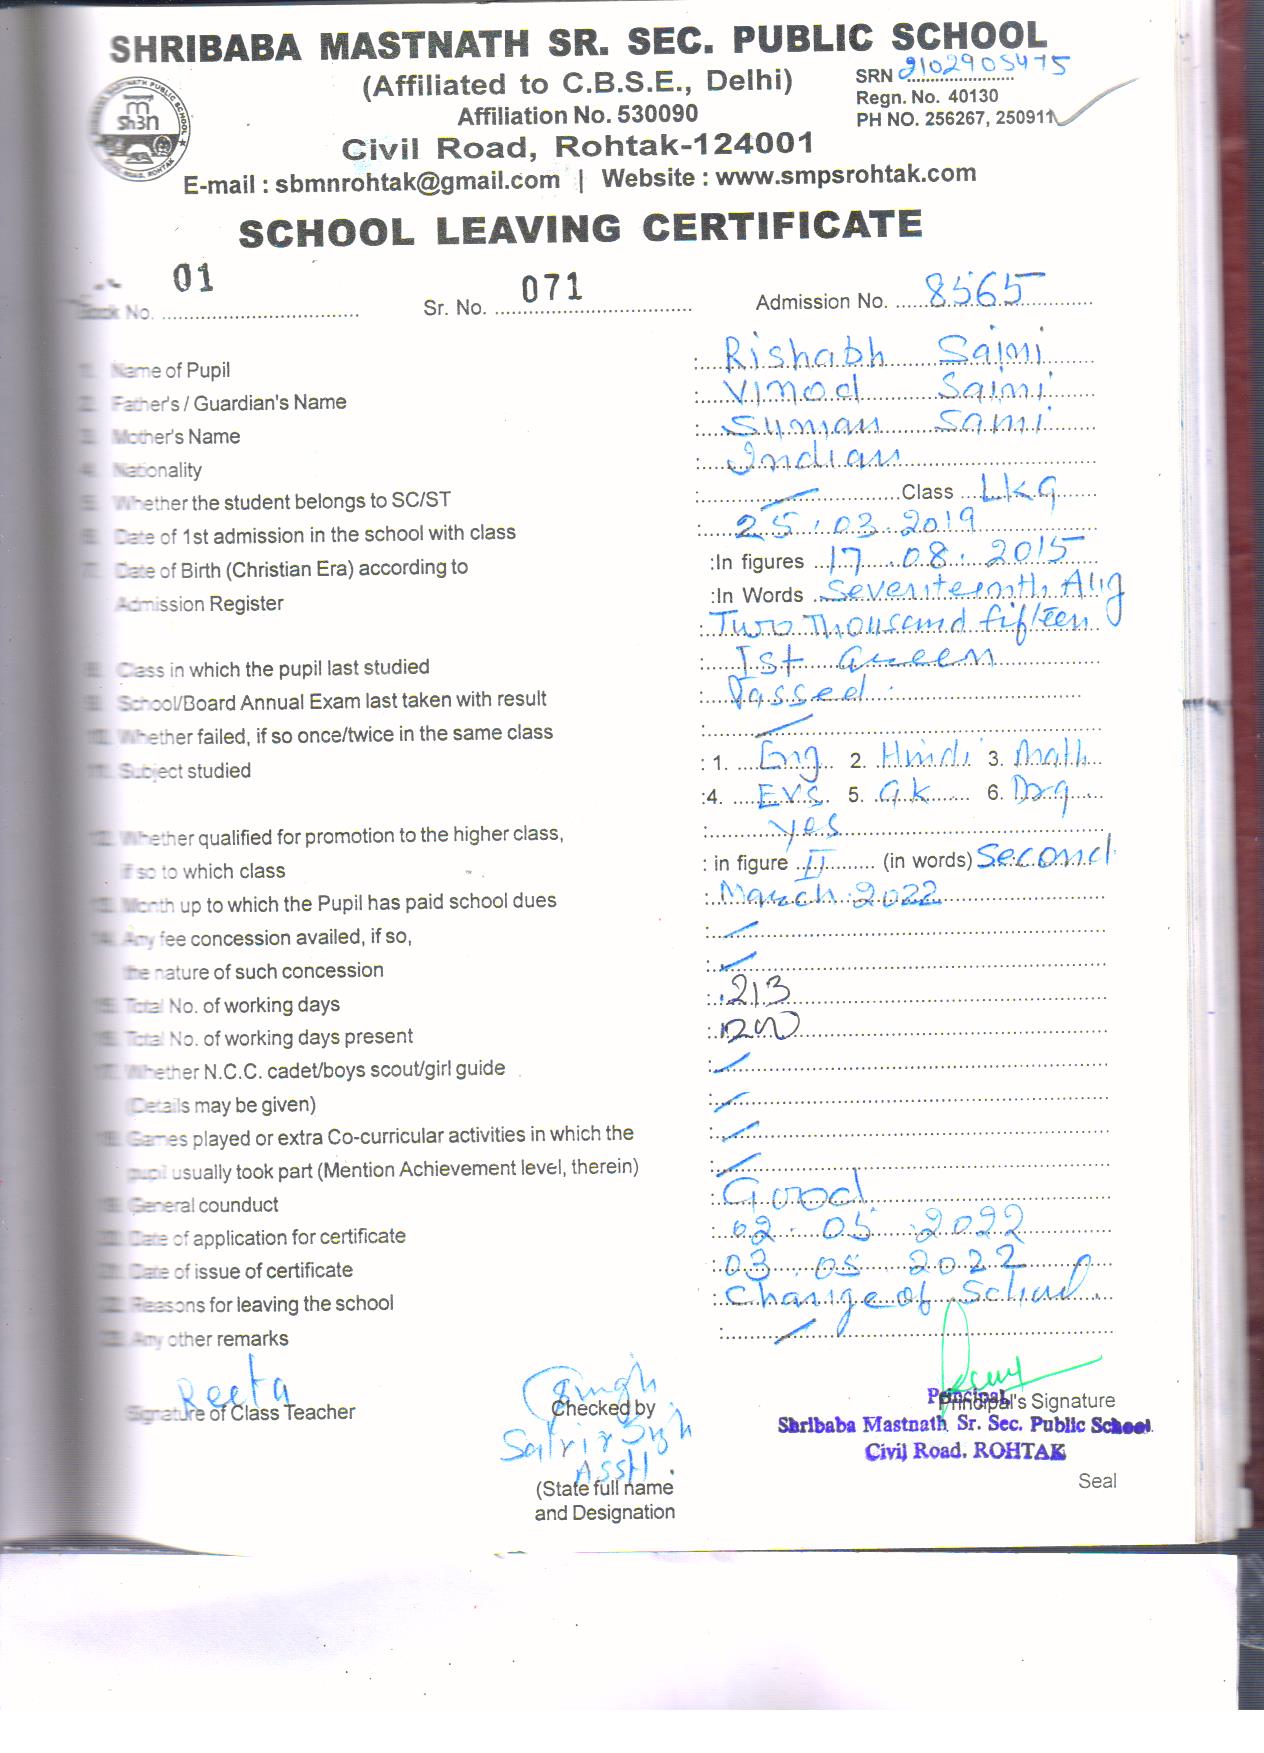 SHRIBABA MASTNATH SR. SEC. PUBLIC SCHOOL
(Affiliated to C.B.S.E., Delhi)
SRN 2102905475
Affiliation No. 530090
Regn. No. 40130
PH NO. 256267, 250911
Civil Road, Rohtak-124001
E-mail : sbmnrohtak@gmail.com | Website : www.smpsrohtak.com
SCHOOL LEAVING CERTIFICATE
Book No. 01 Sr. No. 071 Admission No. 8565
1. Name of Pupil : Rishabh Saini
2. Father's / Guardian's Name : Vinod Saini
3. Mother's Name : Suman Saini
4. Nationality : Indian
5. Whether the student belongs to SC/ST : Class LKG
6. Date of 1st admission in the school with class : 25.03.2019
7. Date of Birth (Christian Era) according to :In figures 17.08.2015
Admission Register :In Words Seventeenth Aug
: Two Thousand fifteen
8. Class in which the pupil last studied : Ist Green
9. School/Board Annual Exam last taken with result : Passed
10. Whether failed, if so once/twice in the same class :
11. Subject studied : 1. Eng 2. Hindi 3. Math
:4. EVS 5. GK 6. Drg
12. Whether qualified for promotion to the higher class, : yes
if so to which class : in figure II (in words) Second
13. Month up to which the Pupil has paid school dues : March 2022
14. Any fee concession availed, if so, :
the nature of such concession :
15. Total No. of working days : 213
16. Total No. of working days present : 200
17. Whether N.C.C. cadet/boys scout/girl guide :
(Details may be given) :
18. Games played or extra Co-curricular activities in which the :
pupil usually took part (Mention Achievement level, therein) :
19. General counduct : Good
20. Date of application for certificate : 02.05.2022
21. Date of issue of certificate : 03.05.2022
22. Reasons for leaving the school : Change of School.
23. Any other remarks :
Reeta
Signature of Class Teacher Checked by Principal's Signature
Principal
Shribaba Mastnath Sr. Sec. Public School
Civil Road, ROHTAK
Seal
(State full name
and Designation